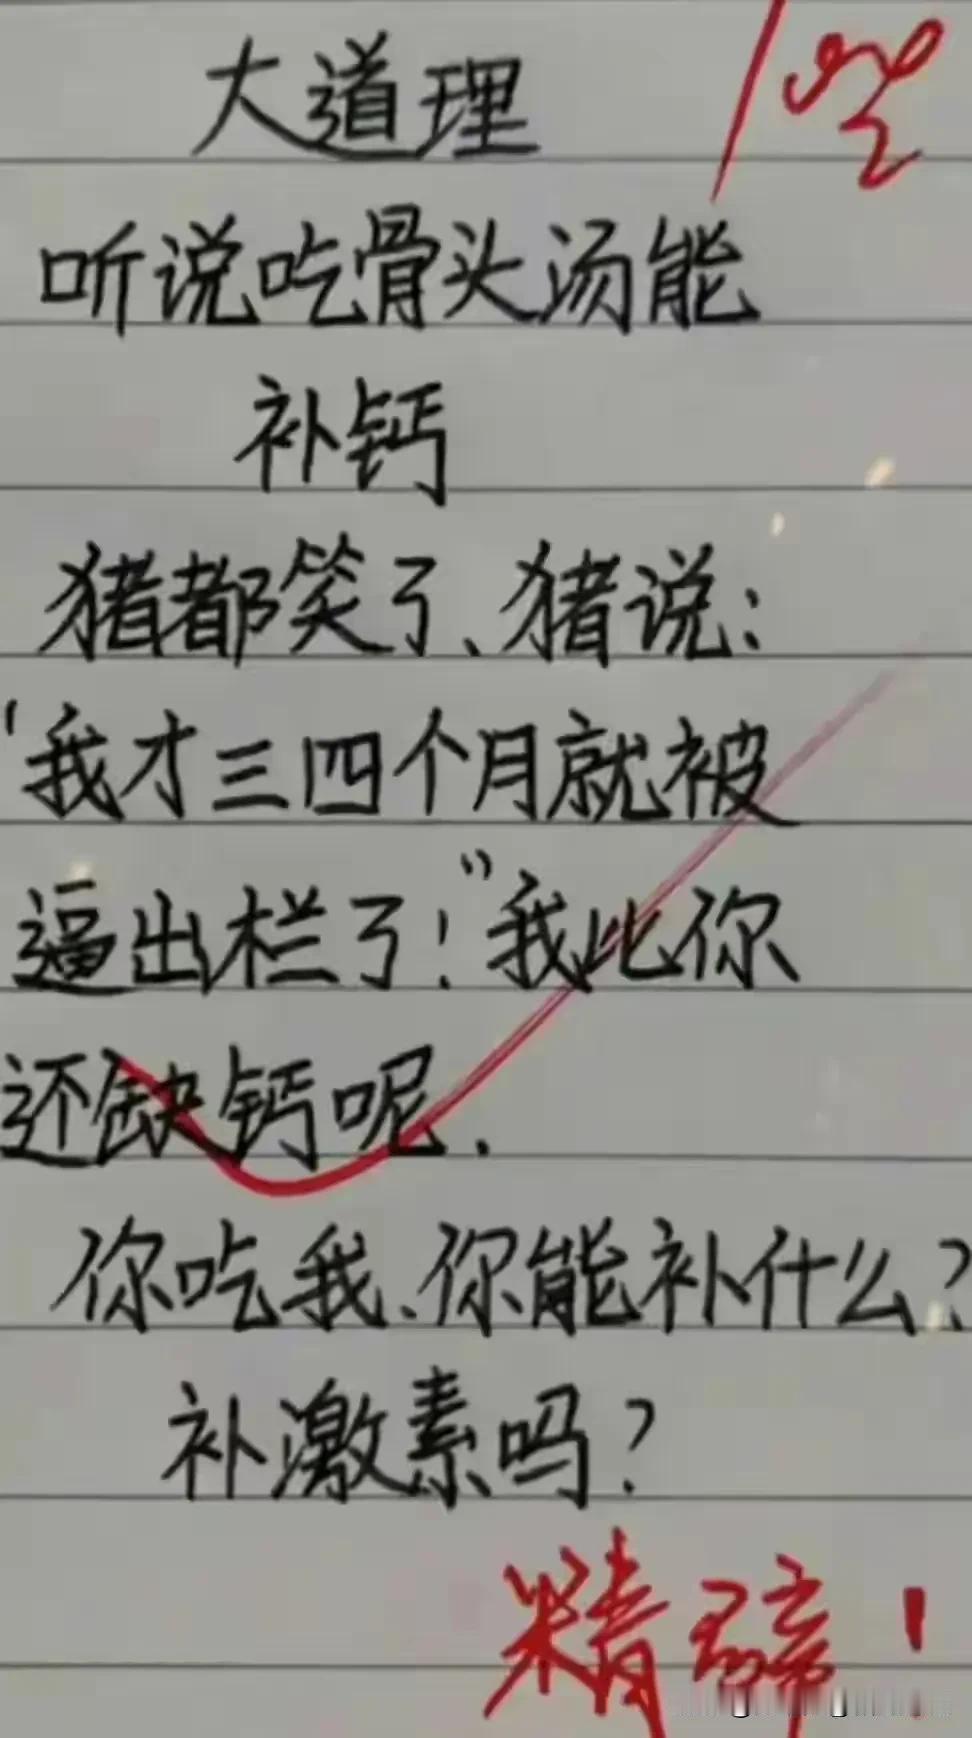 大道理
100
听说吃骨头汤能
补钙
猪都笑了、猪说：
"我才三四个月就被
逼出栏了！"我比你
还缺钙呢.
你吃我、你能补什么？
补激素吗？
精辟！